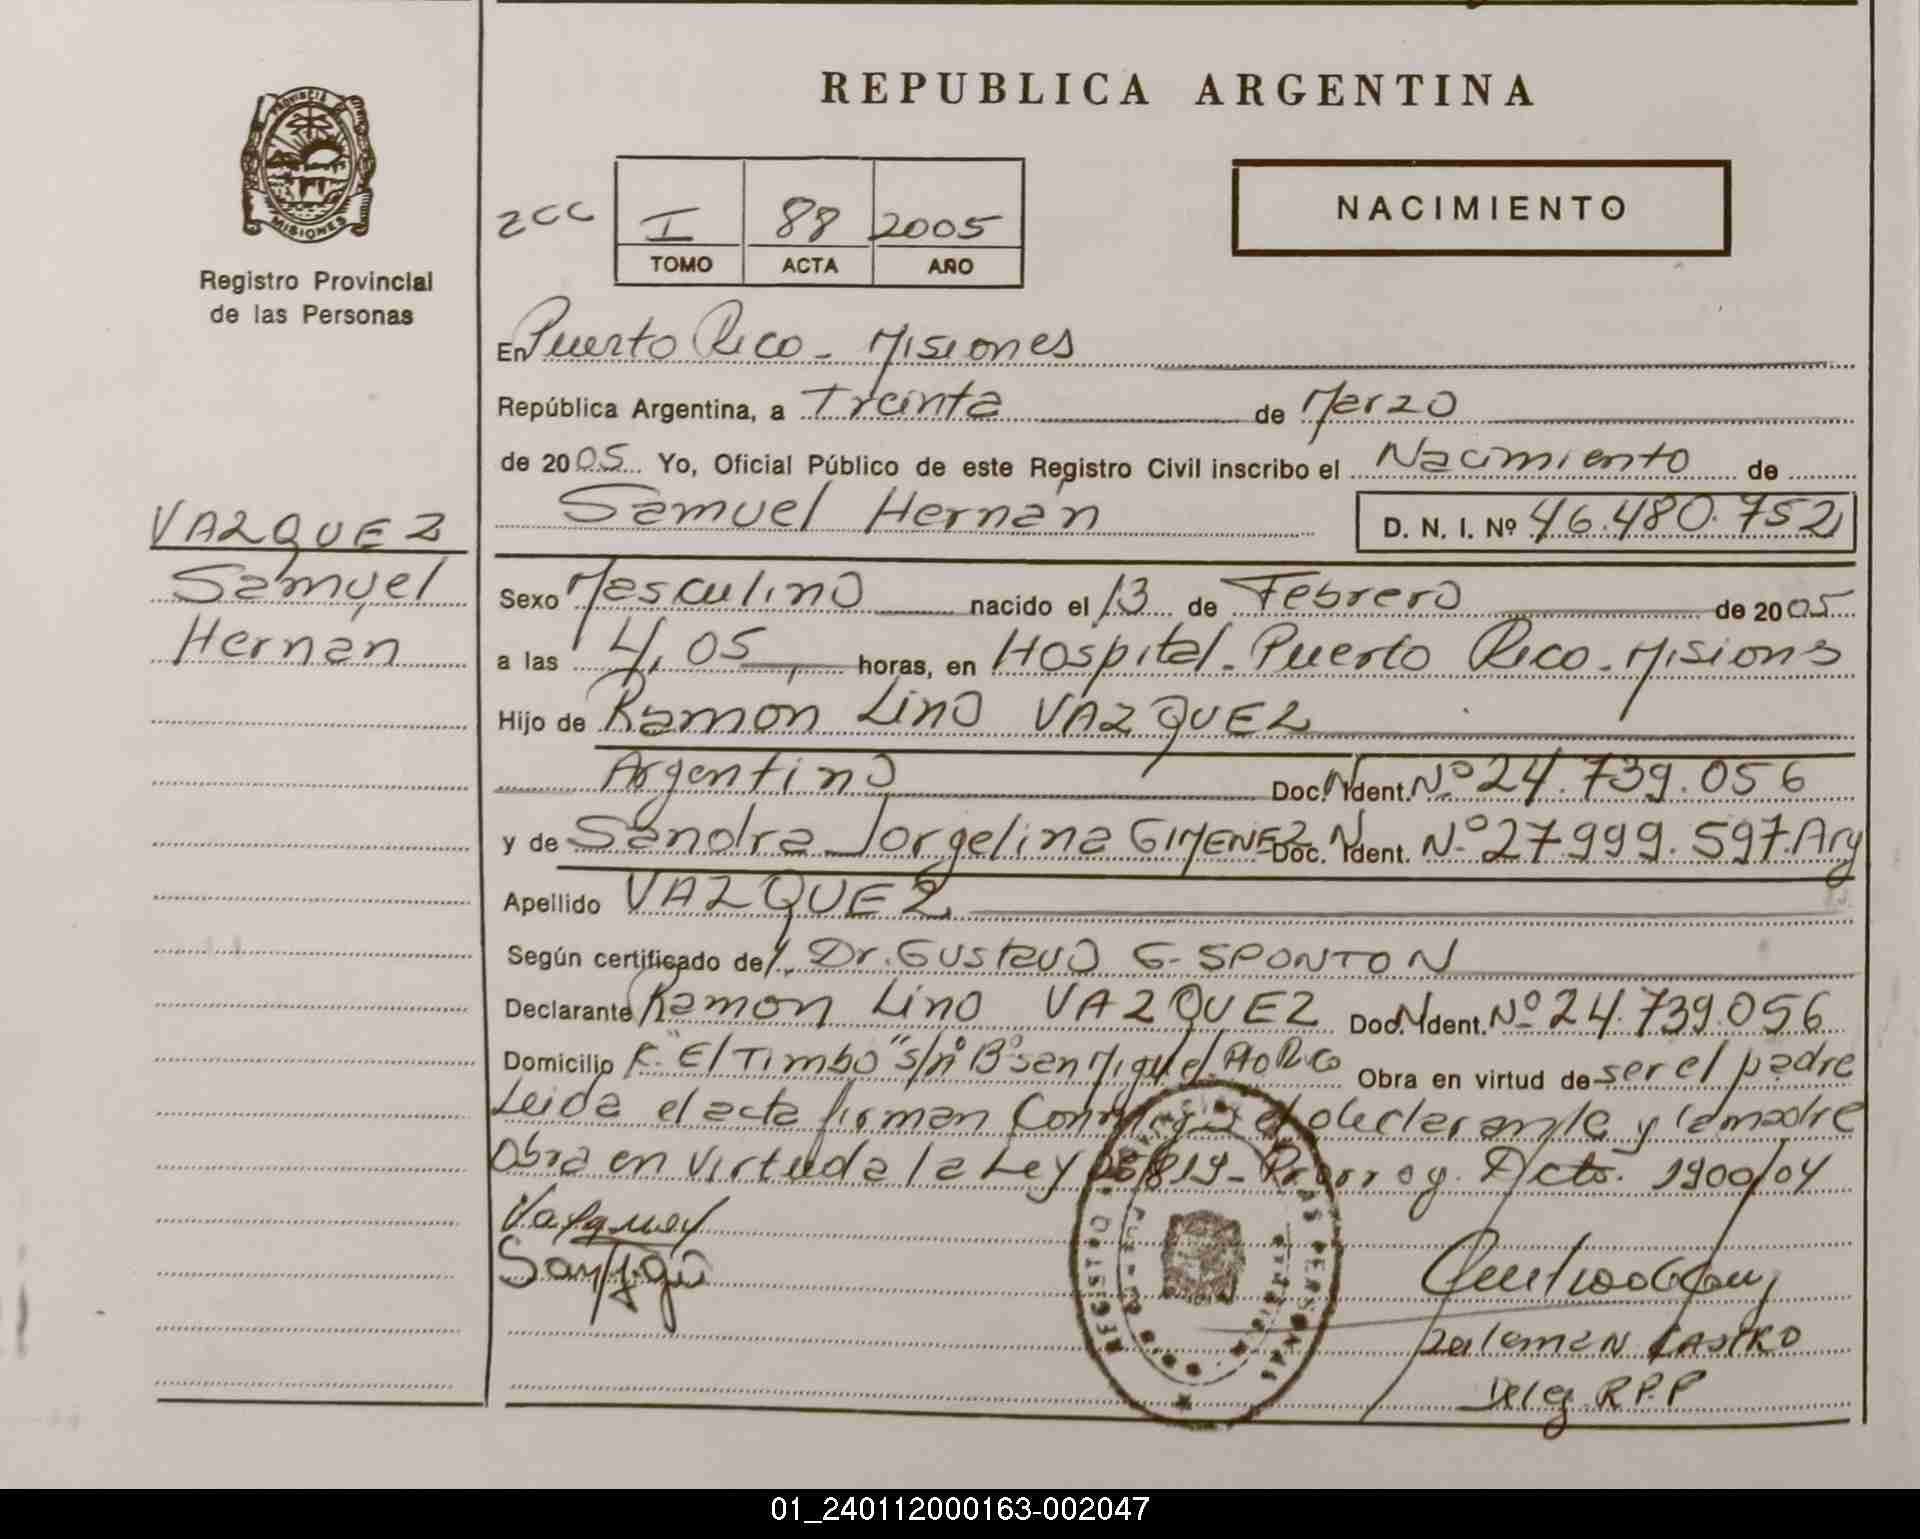 PROVINCIA DE
MISIONES
Registro Provincial
de las Personas
VAZQUEZ
Samuel
Hernan
REPUBLICA ARGENTINA
I 88 2005
TOMO ACTA AÑO
NACIMIENTO
En Puerto Rico - Misiones
República Argentina, a Treinta de Marzo
de 2005 Yo, Oficial Público de este Registro Civil inscribo el Nacimiento de
Samuel Hernán D. N. I. Nº 46.480.752
Sexo Masculino nacido el 13 de Febrero de 2005
a las 4,05 horas, en Hospital - Puerto Rico - Misions
Hijo de Ramón Lino VAZQUEZ
Argentino Doc. N Ident. Nº 24.739.056
y de Sandra Jorgelina GIMENEZ Doc. N Ident. Nº 27.999.597. Arg
Apellido VAZQUEZ
Según certificado del Dr. Gustavo G. SPONTON
Declarante Ramón Lino VAZQUEZ Doc. N Ident. Nº 24.739.056
Domicilio "El Timbo" s/nº Bº San Miguel. Pto Rico Obra en virtud de ser el padre
Leida el acta firman Conmigo el declarante y la madre
Obra en virtud a la Ley 25819 - Prorrog. Dcto. 1900/04
Vazquez
CASTRO
Deleg. R.P.P
REGISTRO PROVINCIAL DE LAS PERSONAS
01_240112000163-002047